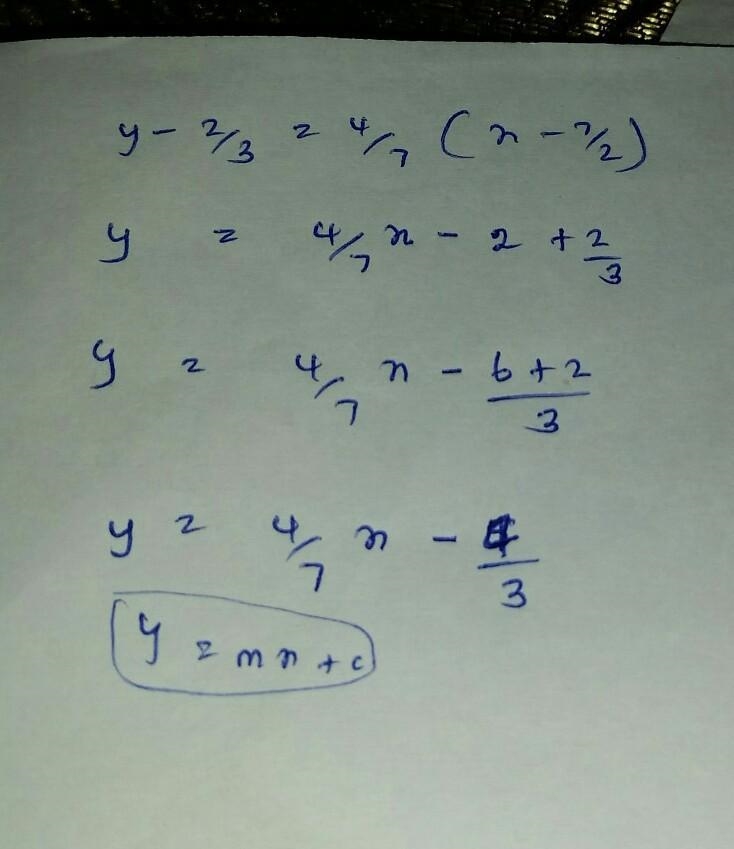 y - 2/3 = 4/7 (x - 7/2)
y = 4/7 x - 2 + 2/3
y = 4/7 x - 6+2/3
y = 4/7 x - 4/3
y = mx + c